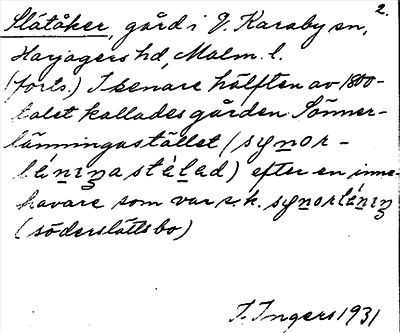 2.
Slätåker, gård i V. Karaby sn,
Harjagers hd, Malm. l.
(forts.) I senare hälften av 1800-
talet kallades gården Sönner-
länningastället (synor-
léningastélad) efter en inne-
havare som var s.k. synorléning
(söderslättsbo)
I. Ingers 1931